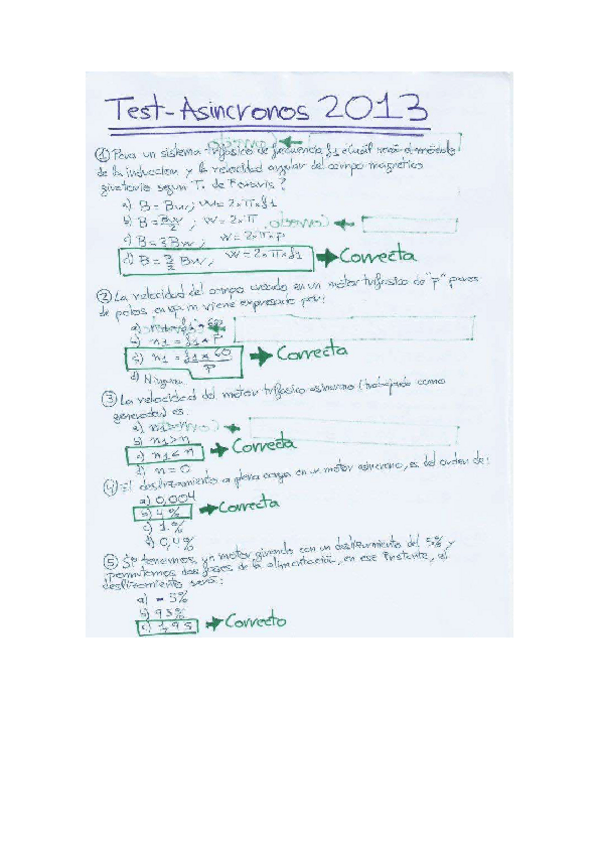 Test-Asincronos 2013
① Para un sistema trifásico de frecuencia f1 ¿Cuál será el módulo
de la inducción y la velocidad angular del campo magnético
giratorio según T. de Ferraris?
a) B = Bm; W = 2×π×f1
W = 2×π
W = 2×π×p
d) B = 3/2 Bm; W = 2×π×f1 → Correcta
② La velocidad del campo creado en un motor trifásico de "p" pares
de polos, en r.p.m viene expresado por:
b) n1 = f1 × P
c) n1 = f1 × 60 / P → Correcta
d) Ninguna
③ La velocidad del motor trifásico asincrono (trabajando como
generador) es.
b) n1 > n
c) n1 < n → Correcta
d) n = 0
④ El deslizamiento a plena carga en un motor asincrono, es del orden de:
a) 0,004
b) 4% → Correcta
c) 1%
d) 0,4%
⑤ Si tenemos un motor girando con un deslizamiento del 5% y
permutamos dos fases de la alimentación, en ese instante, el
deslizamiento será:
a) - 5%
b) 95%
c) 1,95 → Correcto